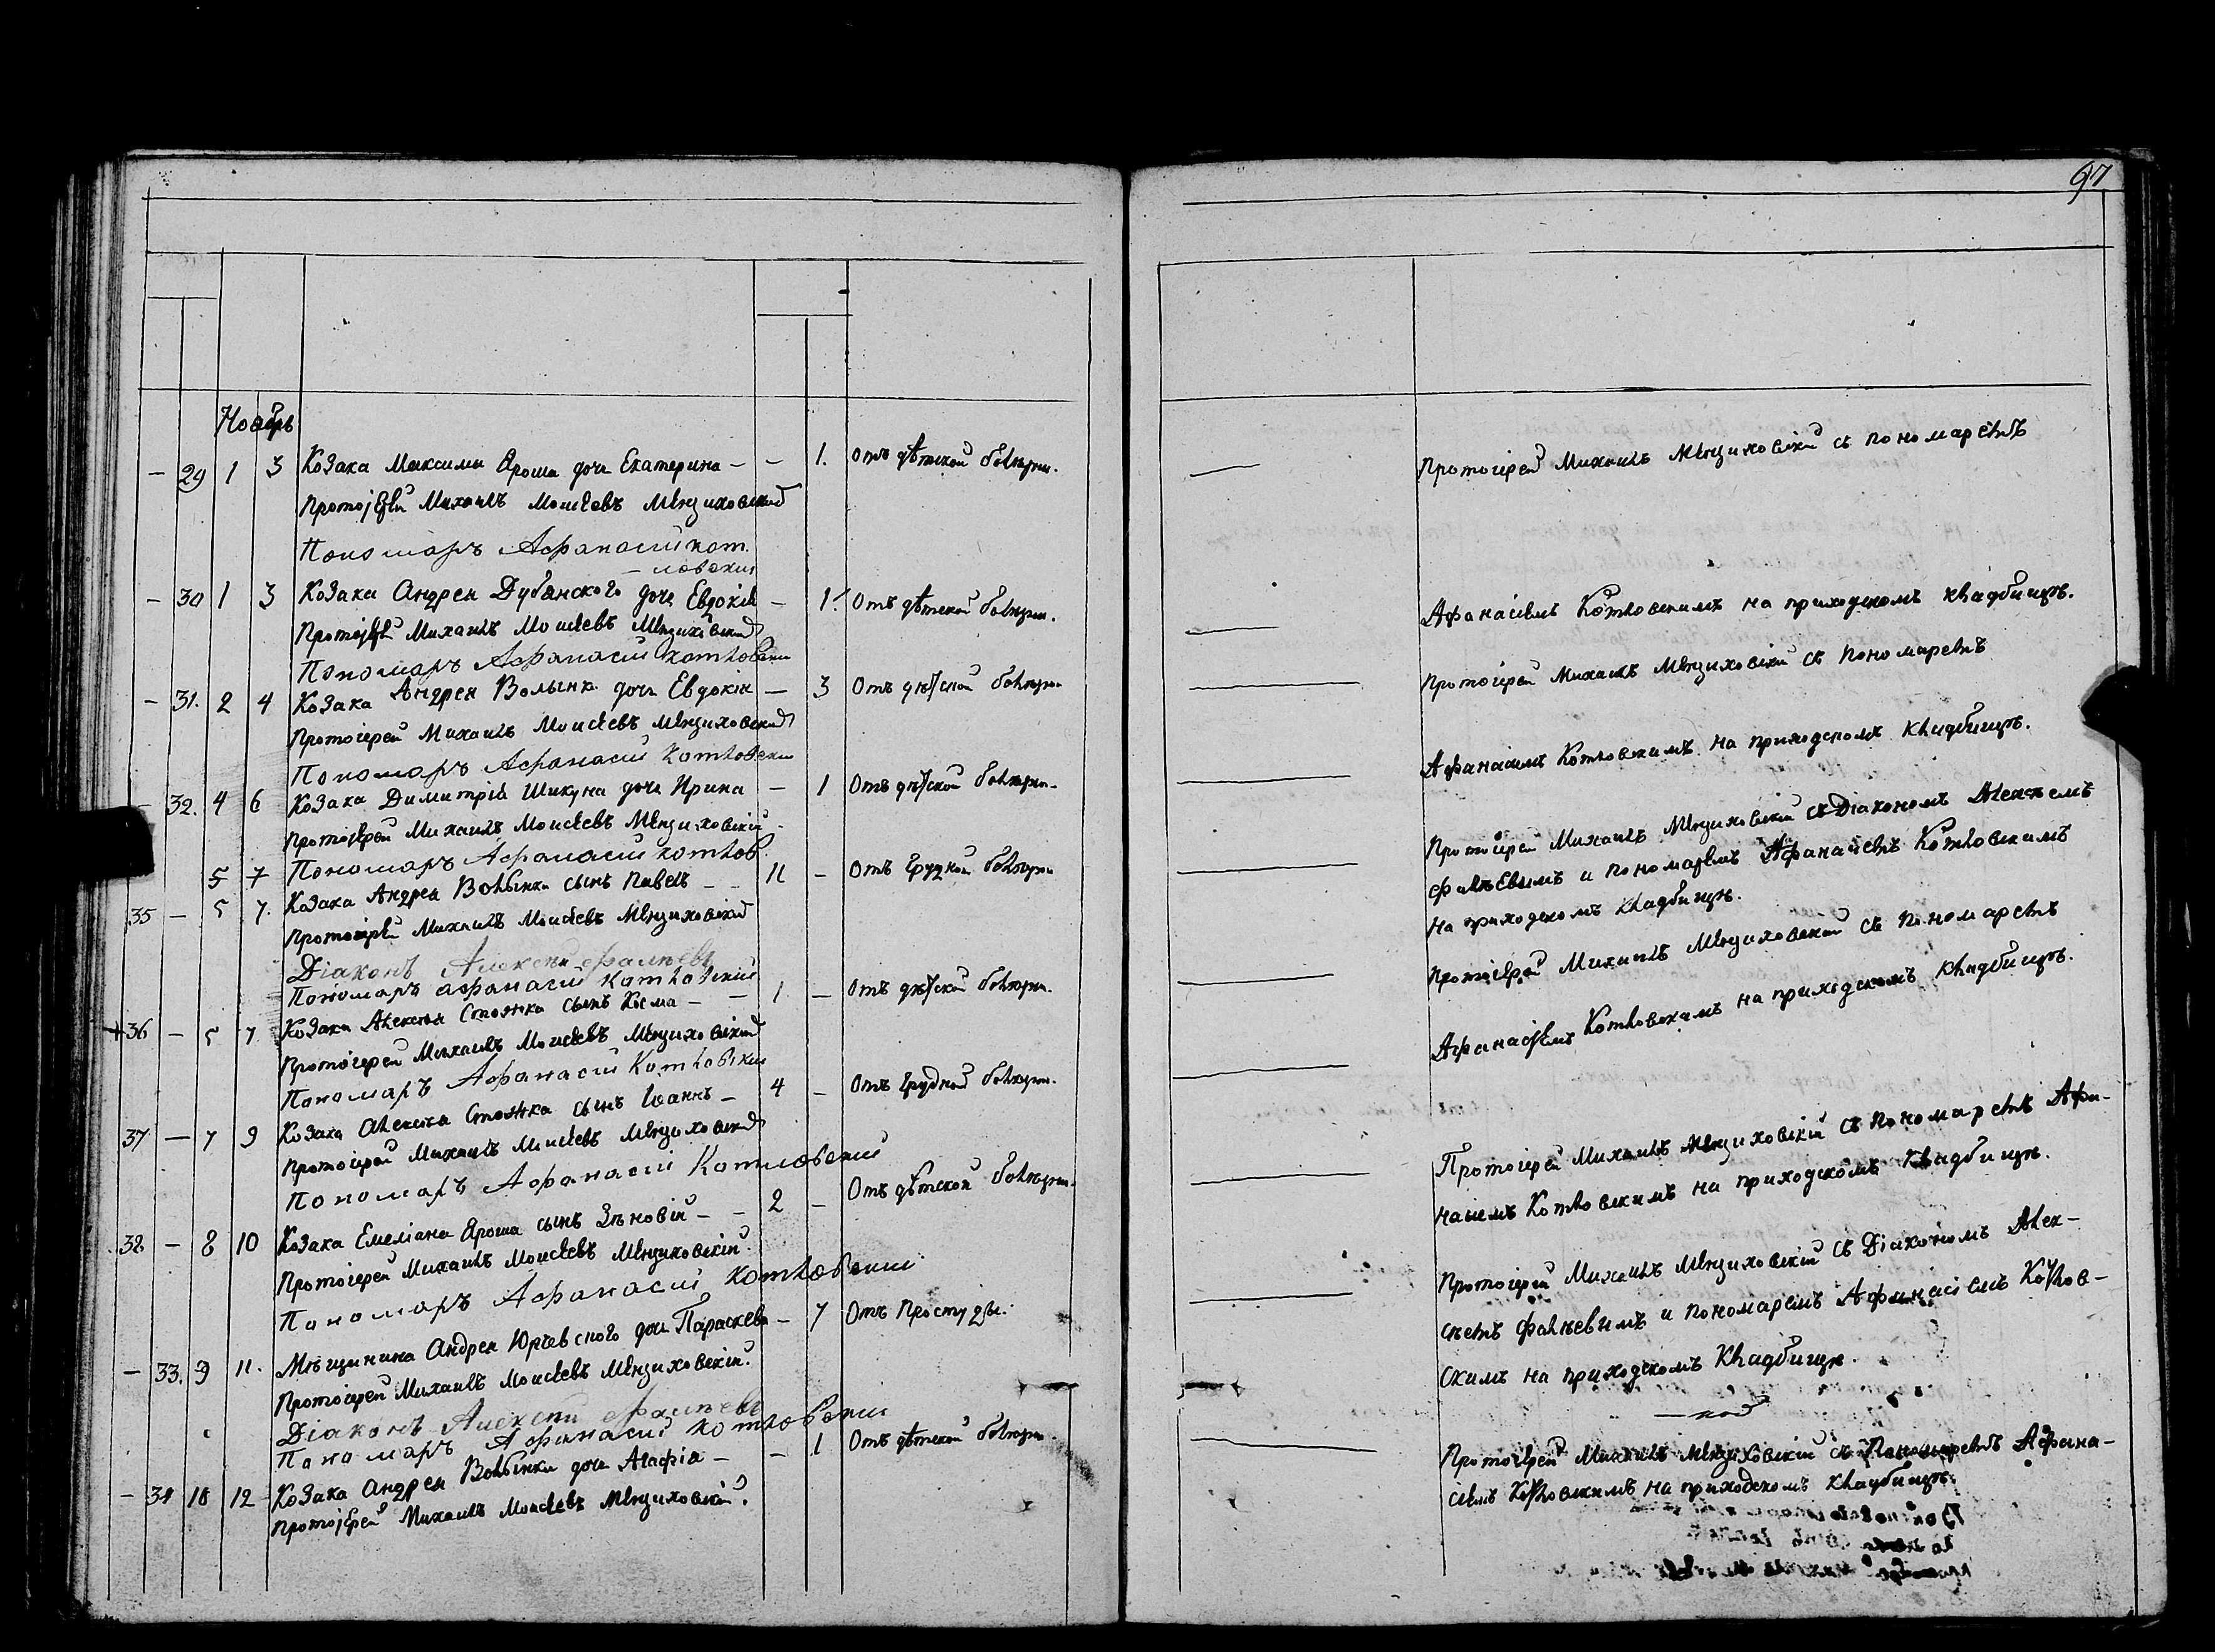 97
Ноябрь
— 29 1 3 Козака Максима Яроша дочь Екатерина — — 1. Отъ дѣтской болѣзни.
Протоіерей Михаилъ Моисеевъ
Пономарь Афанасий Кот-
ловский
— 30 1 3 Козака Андрея Дубянского дочь Евдокія — 1. Отъ дѣтской болѣзни.
Протоіерей Михаилъ Моисеевъ
Пономарь Афанасий Котловский
— 31. 2 4 Козака Андрея Волынка дочь Евдокія — 3 Отъ дѣтской болѣзни
Протоіерей Михаилъ Моисеевъ
Пономарь Афанасий Котловский
— 32. 4 6 Козака Димитрія Шикуна дочь Ирина — 1 Отъ дѣтской болѣзни.
Протоіерей Михаилъ Моисеевъ
5 7 Пономарь Афанасий Котлов
35 — 5 7. Козака Андрея Волынки сынъ Павелъ — 11 — Отъ Грудной болѣзни
Протоіерей Михаилъ Моисеевъ
Діаконъ Алексей Фалѣевъ
Пономарь Афанасий Котловский
+36 — 5 7 Козака Алексея Стожка сынъ Косма — — 1 — Отъ дѣтской болѣзни.
Протоіерей Михаилъ Моисеевъ
Пономарь Афанасий Котловский
37 — 7 9 Козака Алексея Стожка сынъ Іоаннъ — 4 — Отъ Грудной болѣзни.
Протоіерей Михаилъ Моисеевъ
Пономарь Афанасий Котловский
38 — 8 10 Козака Емеліана Яроша сынъ Зѣновій — — 2 — Отъ дѣтской болѣзни.
Протоіерей Михаилъ Моисеевъ
Пономарь Афанасий Котловский
— 33. 9 11. Мѣщанина Андрея Юрьевского дочь Параскева — 7 Отъ Простуды.
Протоіерей Михаилъ Моисеевъ
Діаконъ Алексей Фалѣевъ
Пономарь Афанасий Котловский
— 34 10 12 Козака Андрея Волынки дочь Агафія — — 1 Отъ дѣтской болѣзни
Протоіерей Михаилъ Моисеевъ
Протоіерей Михаилъ съ пономаремъ
Афанасіемъ Котловскимъ на приходскомъ кладбищѣ.
Протоіерей Михаилъ съ Пономаремъ
Афанасіемъ Котловскимъ на приходскомъ кладбищѣ.
Протоіерей Михаилъ съ Діакономъ Алексѣемъ
Фалѣевымъ и пономаремъ Афанасіемъ Котловскимъ
на приходскомъ кладбищѣ.
Протоіерей Михаилъ съ пономаремъ
Афанасіемъ Котловскимъ на приходскомъ кладбищѣ.
Протоіерей Михаилъ съ пономаремъ Афа-
насіемъ Котловскимъ на приходскомъ кладбищѣ.
Протоіерей Михаилъ съ Діакономъ Алек-
сѣемъ Фалѣевымъ и пономаремъ Афанасіемъ Котлов-
скимъ на приходскомъ кладбищѣ.
Протоіерей Михаилъ съ Пономаремъ Афана-
сіемъ Котловскимъ на приходскомъ кладбищѣ.